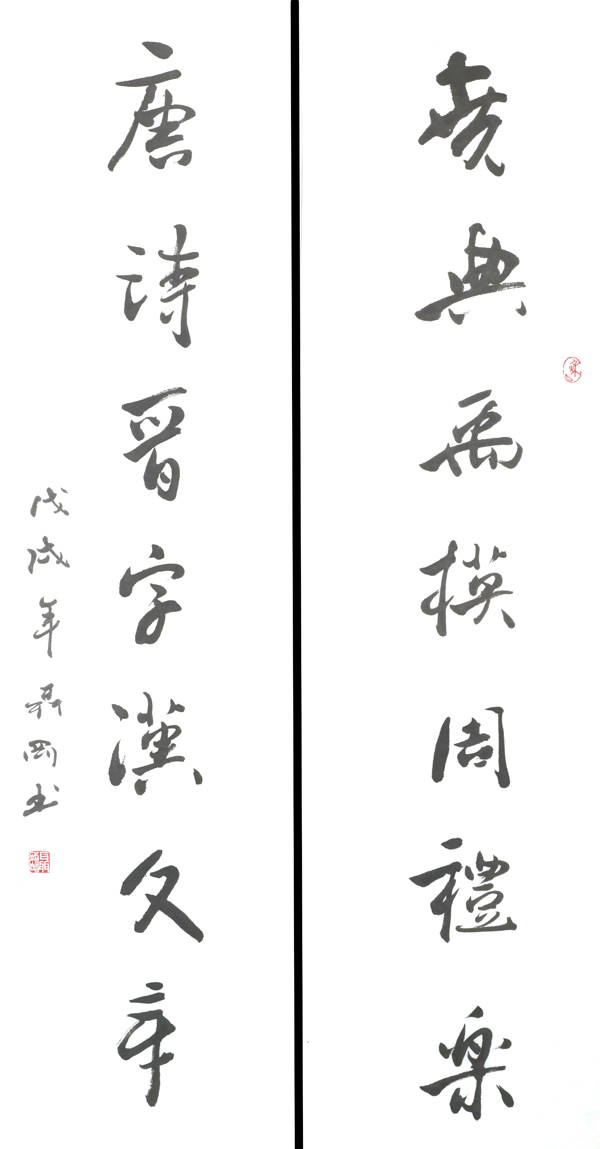 堯典禹模周禮樂
唐詩晉字漢文章
戊戌年聶剛书